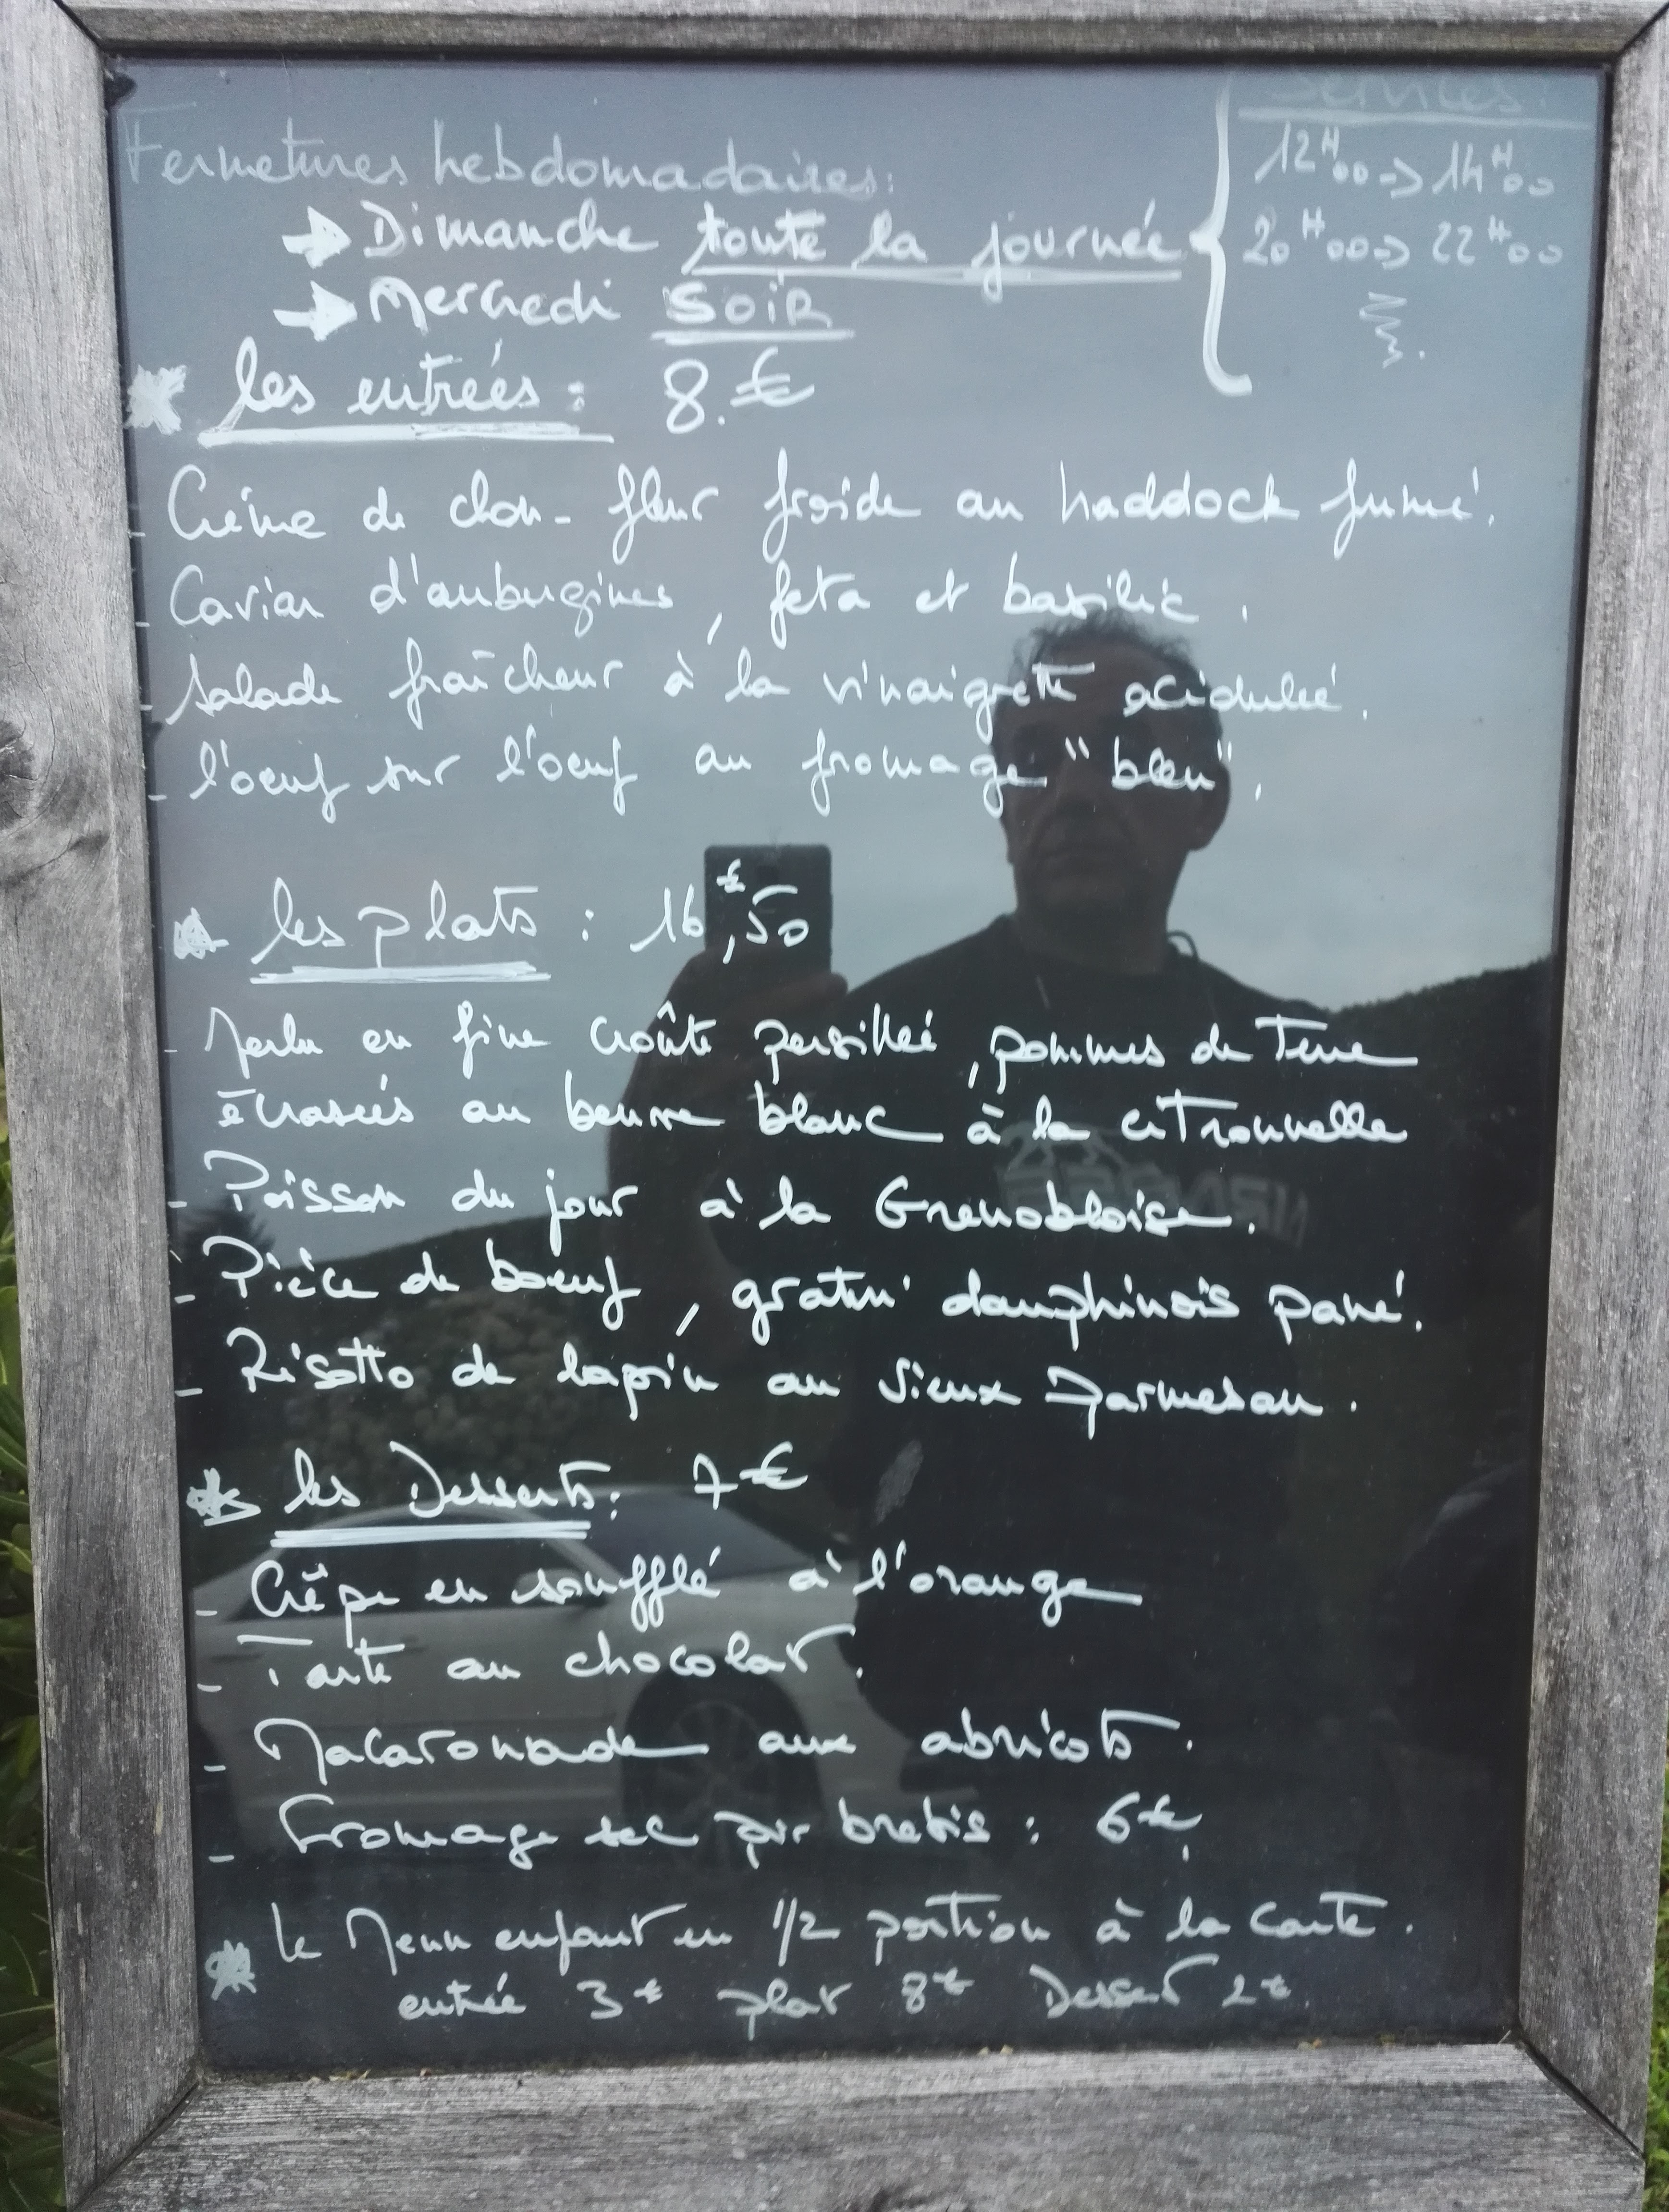 Services:
12H00 → 14H00
20H00 → 22H00
Fermetures hebdomadaires:
→ Dimanche toute la journée
→ Mercredi SOIR
* les entrées : 8.€
- Crème de chou-fleur froide au haddock fumé.
- Caviar d'aubergines, feta et basilic.
- Salade fraîcheur à la vinaigrette acidulée.
- l'oeuf sur l'oeuf au fromage "bleu".
* les plats : 16€,50
- Merlu en fine croûte persillée, pommes de Terre
écrasées au beurre blanc à la citronnelle
- Poisson du jour à la Grenobloise.
- Pièce de boeuf, gratin dauphinois pané.
- Risotto de lapin au vieux Parmesan.
* les Desserts: 7€
- Crêpe en soufflé à l'orange
- Tarte au chocolat.
- Macaronade aux abricots.
- Fromage sec pur brebis : 6€.
* Le Menu enfant en 1/2 portion à la carte.
entrée 3€ plat 8€ Dessert 2€.